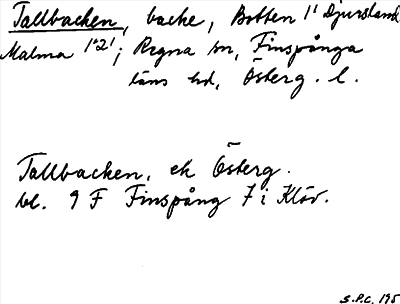 Tallbacken, backe, Botten 1¹ Djursland
Malma 1°2¹; Regna sn, Finspånga
läns hd, Österg. l.
Tallbacken, ek Österg.
bl. 9 F Finspång 7 i Klöv.
S.P.C. 195